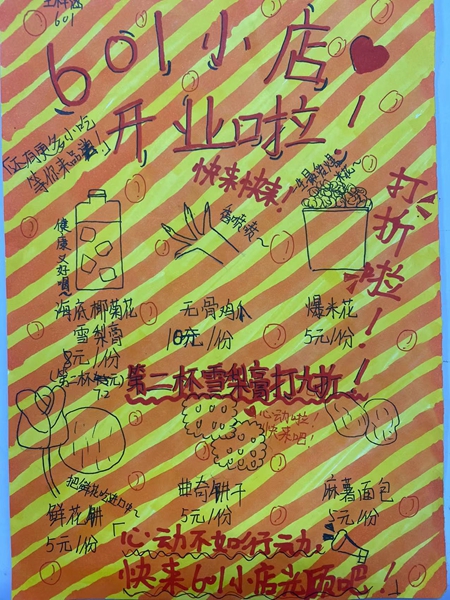 601
601小店
开业啦！
还有更多小吃
等你来品尝！
快来快来！
牛桑爆爆
米花~
打折啦！
健康又好喝~
香喷喷~
海底椰菊花
雪梨膏
8元/份
(第二杯
7.2
无骨鸡爪
10元/份
爆米花
5元/份
第二杯雪梨膏打九折！
心动啦！
快来吧！
把鲜花吃进口中
鲜花饼
5元/份
曲奇饼干
5元/份
麻薯面包
5元/份
「心动不如行动，
快来601小店光顾吧！」